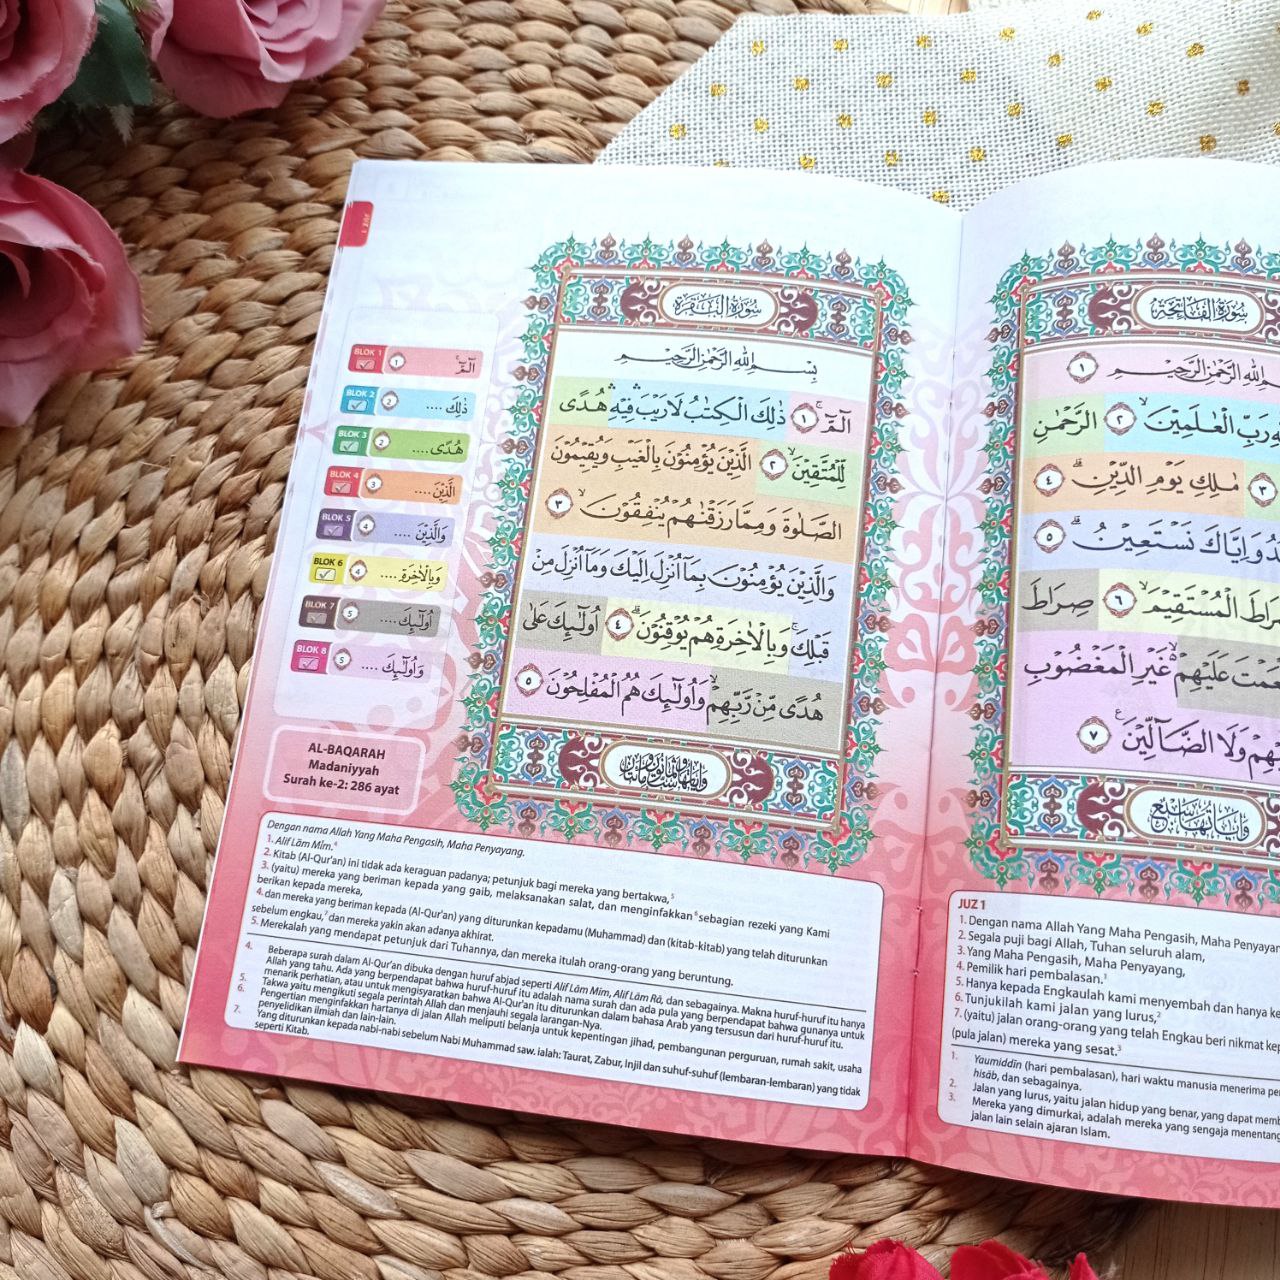 JUZ 1
BLOK 1 ١ الٓمّٓ ۚ
BLOK 2 ٢ ذٰلِكَ ....
BLOK 3 ٢ هُدًى....
BLOK 4 ٣ الَّذِيْنَ....
BLOK 5 ٤ وَالَّذِيْنَ ....
BLOK 6 ٤ وَبِالْاٰخِرَةِ ....
BLOK 7 ٥ اُولٰۤىِٕكَ....
BLOK 8 ٥ وَاُولٰۤىِٕكَ ....
AL-BAQARAH
Madaniyyah
Surah ke-2: 286 ayat
سُوْرَةُ الْبَقَرَةِ
بِسْمِ اللّٰهِ الرَّحْمٰنِ الرَّحِيْمِ
الٓمّٓ ۚ ١ ذٰلِكَ الْكِتٰبُ لَا رَيْبَ ۛ فِيْهِ ۛ هُدًى
لِّلْمُتَّقِيْنَۙ ٢ الَّذِيْنَ يُؤْمِنُوْنَ بِالْغَيْبِ وَيُقِيْمُوْنَ
الصَّلٰوةَ وَمِمَّا رَزَقْنٰهُمْ يُنْفِقُوْنَۙ ٣
وَالَّذِيْنَ يُؤْمِنُوْنَ بِمَآ اُنْزِلَ اِلَيْكَ وَمَآ اُنْزِلَ مِنْ
قَبْلِكَۚ وَبِالْاٰخِرَةِ هُمْ يُوْقِنُوْنَۗ ٤ اُولٰۤىِٕكَ عَلٰى
هُدًى مِّنْ رَّبِّهِمْۙ وَاُولٰۤىِٕكَ هُمُ الْمُفْلِحُوْنَ ٥
Dengan nama Allah Yang Maha Pengasih, Maha Penyayang.
1. Alif Lām Mīm.⁴
2. Kitab (Al-Qur'an) ini tidak ada keraguan padanya; petunjuk bagi mereka yang bertakwa,⁵
3. (yaitu) mereka yang beriman kepada yang gaib, melaksanakan salat, dan menginfakkan⁶ sebagian rezeki yang Kami
berikan kepada mereka,
4. dan mereka yang beriman kepada (Al-Qur'an) yang diturunkan kepadamu (Muhammad) dan (kitab-kitab) yang telah diturunkan
sebelum engkau,⁷ dan mereka yakin akan adanya akhirat.
5. Merekalah yang mendapat petunjuk dari Tuhannya, dan mereka itulah orang-orang yang beruntung.
4. Beberapa surah dalam Al-Qur'an dibuka dengan huruf abjad seperti Alif Lām Mīm, Alif Lām Rā, dan sebagainya. Makna huruf-huruf itu hanya
Allah yang tahu. Ada yang berpendapat bahwa huruf-huruf itu adalah nama surah dan ada pula yang berpendapat bahwa gunanya untuk
menarik perhatian, atau untuk mengisyaratkan bahwa Al-Qur'an itu diturunkan dalam bahasa Arab yang tersusun dari huruf-huruf itu.
5. Takwa yaitu mengikuti segala perintah Allah dan menjauhi segala larangan-Nya.
6. Pengertian menginfakkan hartanya di jalan Allah meliputi belanja untuk kepentingan jihad, pembangunan perguruan, rumah sakit, usaha
penyelidikan ilmiah dan lain-lain.
7. Yang diturunkan kepada nabi-nabi sebelum Nabi Muhammad saw. ialah: Taurat, Zabur, Injil dan suhuf-suhuf (lembaran-lembaran) yang tidak
seperti Kitab.
سُوْرَةُ الْفَاتِحَةِ
اللّٰهِ الرَّحْمٰنِ الرَّحِيْمِ ١
رَبِّ الْعٰلَمِيْنَۙ ٢ الرَّحْمٰنِ
٣ مٰلِكِ يَوْمِ الدِّيْنِۗ ٤
وَاِيَّاكَ نَسْتَعِيْنُۗ ٥
الْمُسْتَقِيْمَۙ ٦ صِرَاطَ
عَلَيْهِمْ ەۙ غَيْرِ الْمَغْضُوْبِ
وَلَا الضَّاۤلِّيْنَ ࣖ ٧
JUZ 1
1. Dengan nama Allah Yang Maha Pengasih, Maha
2. Segala puji bagi Allah, Tuhan seluruh alam,
3. Yang Maha Pengasih, Maha Penyayang,
4. Pemilik hari pembalasan.¹
5. Hanya kepada Engkaulah kami menyembah dan hanya
6. Tunjukilah kami jalan yang lurus,²
7. (yaitu) jalan orang-orang yang telah Engkau beri nikmat
(pula jalan) mereka yang sesat.³
1. Yaumiddīn (hari pembalasan), hari waktu manusia menerima
hisāb, dan sebagainya.
2. Jalan yang lurus, yaitu jalan hidup yang benar, yang dapat
3. Mereka yang dimurkai, adalah mereka yang sengaja
jalan lain selain ajaran Islam.